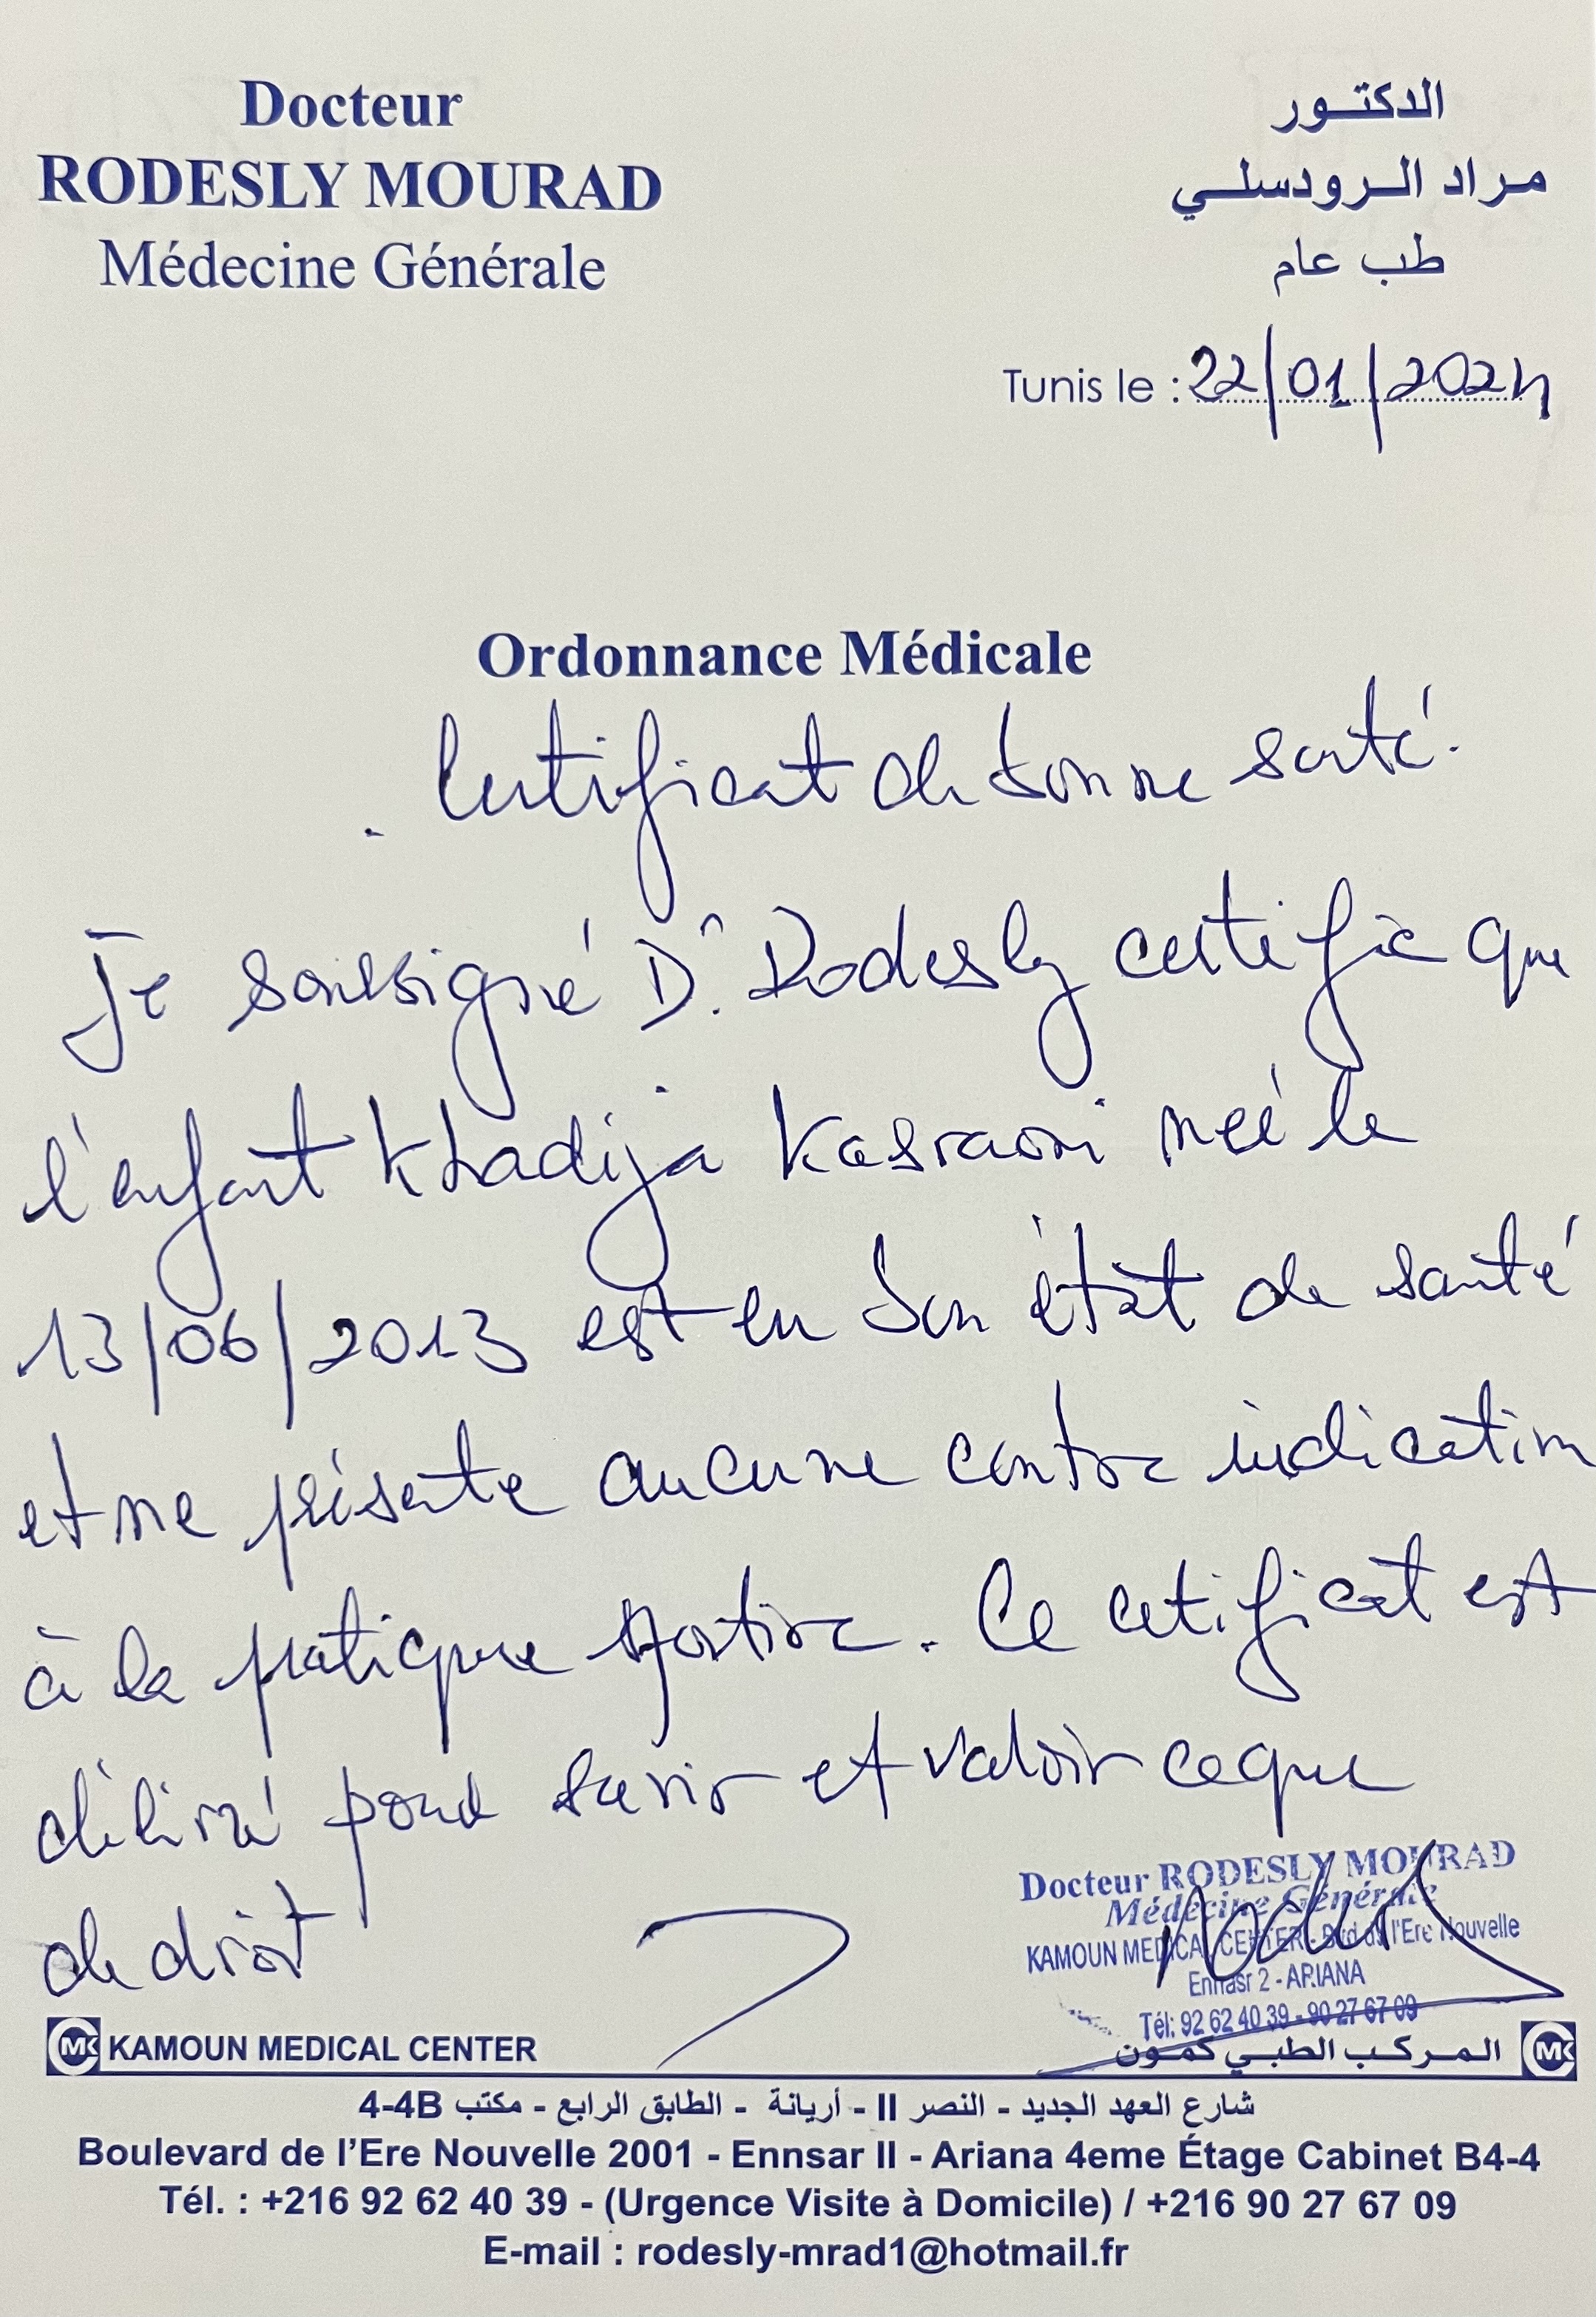 Docteur
RODESLY MOURAD
Médecine Générale
الدكتور
مراد الرودسلي
طب عام
Tunis le : 22/01/2024
Ordonnance Médicale
Certificat de bonne santé.
Je soussigné Dr. Rodesly certifie que
l'enfant Khadija Kasraoui née le
13/06/2013 est en bon état de santé
et ne présente aucune contre indication
à la pratique sportive. Ce cetificat est
délivré pour servir et valoir ce que
de droit
Docteur RODESLY MOURAD
Médecine Générale
KAMOUN MEDICAL CENTER - Blvd de l'Ere Nouvelle
Ennasr 2 - ARIANA
Tél: 92 62 40 39 - 90 27 67 09
MK KAMOUN MEDICAL CENTER
المركب الطبي كمون MK
شارع العهد الجديد - النصر II - أريانة - الطابق الرابع - مكتب 4-4B
Boulevard de l'Ere Nouvelle 2001 - Ennsar II - Ariana 4eme Étage Cabinet B4-4
Tél. : +216 92 62 40 39 - (Urgence Visite à Domicile) / +216 90 27 67 09
E-mail : rodesly-mrad1@hotmail.fr